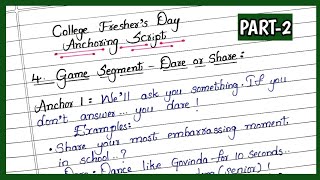 College Fresher's Day
Anchoring Script
PART-2
4. Game Segment - Dare or Share :
Anchor 1 : We'll ask you something. If you
don't answer... you dare !
Examples:
• Share your most embarrassing moment
in school..?
Dance like Govinda for 10 seconds..
(senior) !